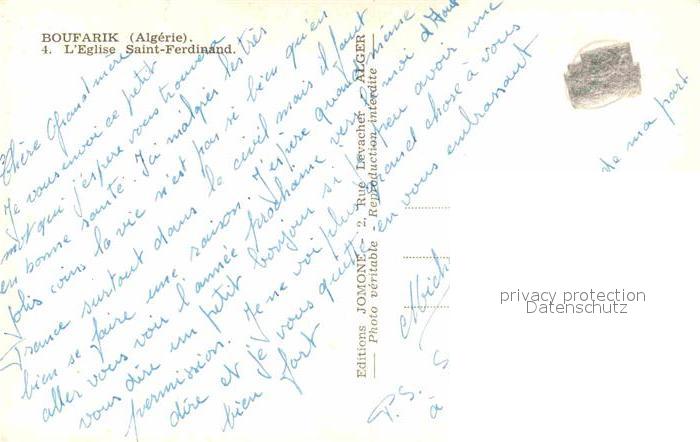 BOUFARIK (Algérie).
4. L'Eglise Saint-Ferdinand.
Chère Grand'mère
Je vous envoi ce petit
mot qui j'espère vous trouvera
en bonne santé. J'ai malgrès les très
plis la vie n'est pas si bien qu'en
France surtout dans le civil mais il faut
bien se faire une raison. J'espère quand même
aller vous voir l'année prochaine vers le moi d'Aout
vous dire un petit bonjour si je peu avoir une
permission. Je ne voi plus grand chose à vous
dire et je vous quitte en vous embrassant
bien fort
Editions JOMONE - 2, Rue Levacher - ALGER
Photo véritable - Reproduction interdite
de ma part
Mich
P.S. S
à
privacy protection
Datenschutz